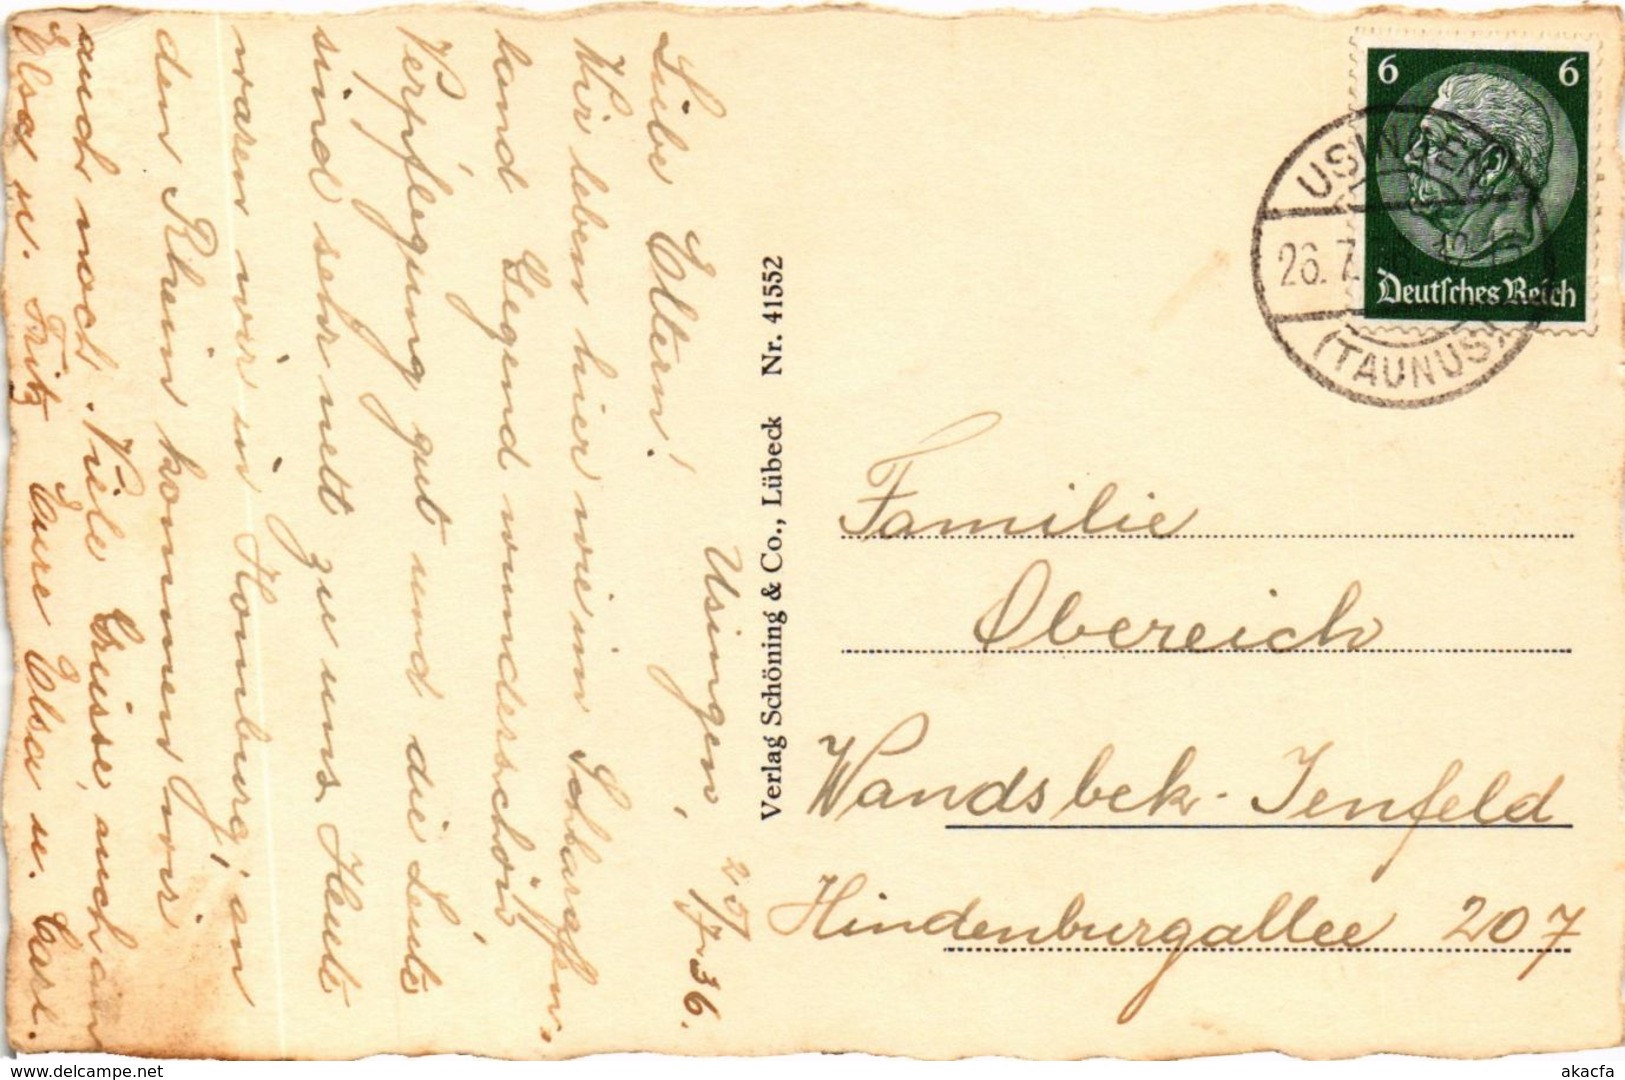 Usingen, 25/7.36.
Liebe Eltern!
Wir leben hier wie im Schlaraffen-
land Gegend wunderschön
Verpflegung gut und die Leute
sind sehr nett zu uns. Heute
waren wir in Homburg, an
den Rhein kommen wir
auch noch. Viele Grüsse, auch an
Elsa u. Fritz Eure Elsa u. Carl.
Verlag Schöning & Co., Lübeck Nr. 41552
6 6
Deutsches Reich
USINGEN
26.7.
(TAUNUS)
Familie
Obereich
Wandsbek-Jenfeld
Hindenburgallee 207
delcampe.net
akacfa